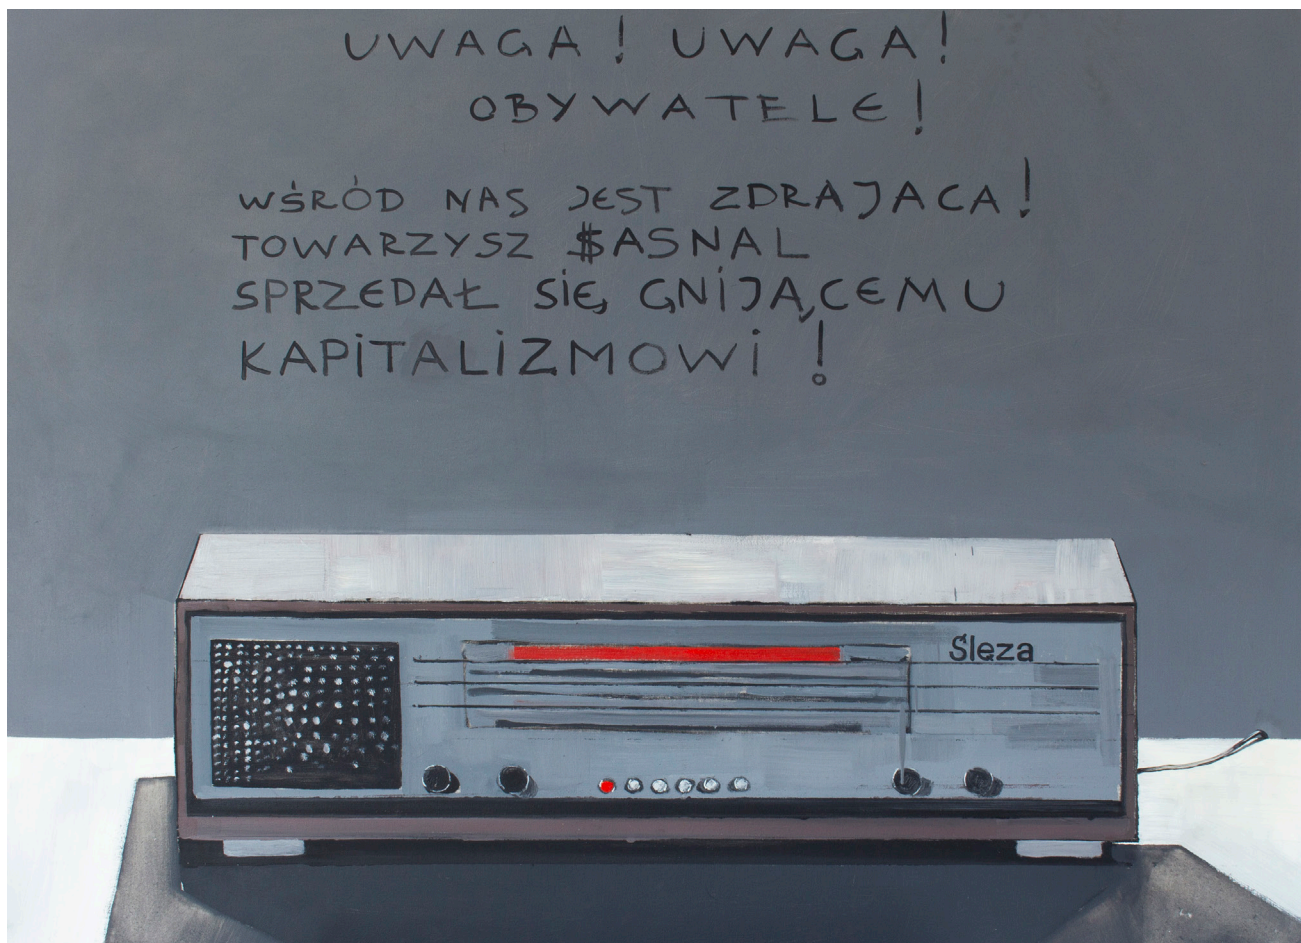 UWAGA! UWAGA!
OBYWATELE!
WŚRÓD NAS JEST ZDRAJACA!
TOWARZYSZ $ASNAL
SPRZEDAŁ SIĘ GNIJĄCEMU
KAPITALIZMOWI!
Śleza